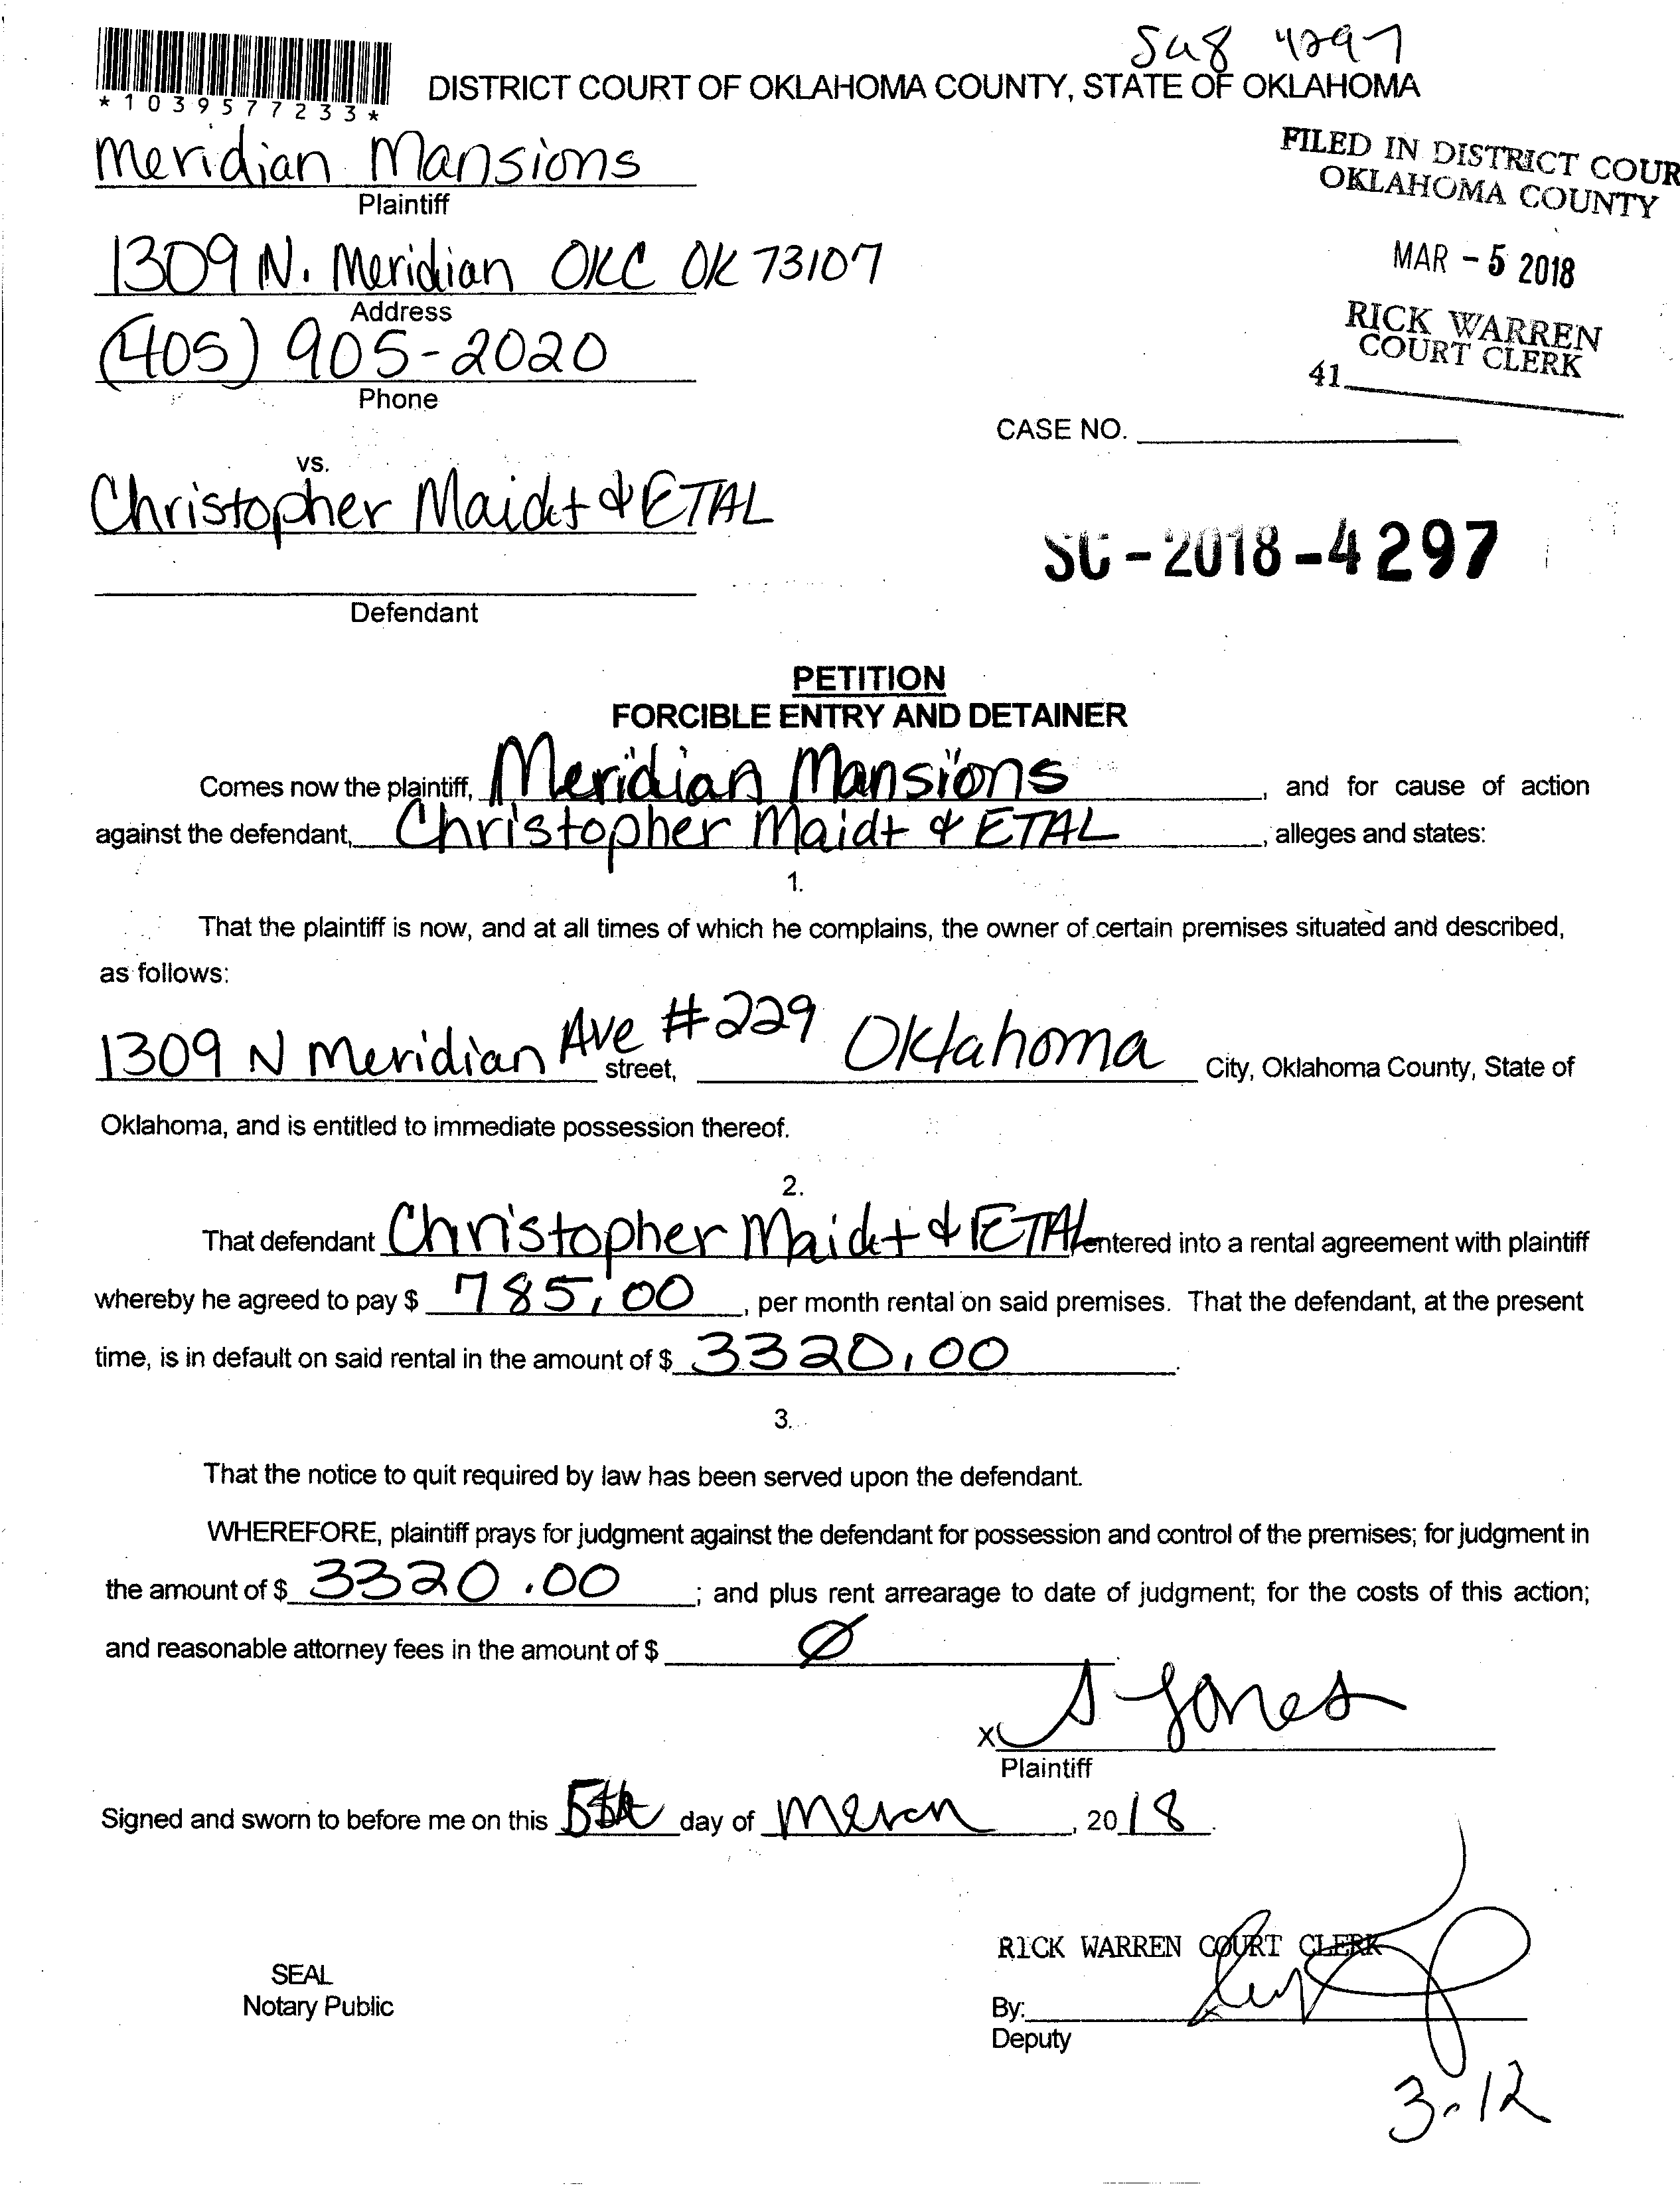 Su8 4297
*1039577233*
DISTRICT COURT OF OKLAHOMA COUNTY, STATE OF OKLAHOMA
Meridian Mansions
Plaintiff
FILED IN DISTRICT COUR
OKLAHOMA COUNTY
MAR - 5 2018
RICK WARREN
COURT CLERK
41
1309 N. Meridian OKC OK 73107
Address
(405) 905-2020
Phone
CASE NO.
vs.
Christopher Maidt & ETAL
SC - 2018 - 4297
Defendant
PETITION
FORCIBLE ENTRY AND DETAINER
Comes now the plaintiff, Meridian Mansions, and for cause of action
against the defendant, Christopher Maidt & ETAL, alleges and states:
1.
That the plaintiff is now, and at all times of which he complains, the owner of certain premises situated and described,
as follows:
1309 N Meridian Ave #229 street, Oklahoma City, Oklahoma County, State of
Oklahoma, and is entitled to immediate possession thereof.
2.
That defendant Christopher Maidt & ETAL entered into a rental agreement with plaintiff
whereby he agreed to pay $ 785.00, per month rental on said premises. That the defendant, at the present
time, is in default on said rental in the amount of $ 3320.00.
3.
That the notice to quit required by law has been served upon the defendant.
WHEREFORE, plaintiff prays for judgment against the defendant for possession and control of the premises; for judgment in
the amount of $ 3320.00; and plus rent arrearage to date of judgment; for the costs of this action;
and reasonable attorney fees in the amount of $ Ø.
x S Jones
Plaintiff
Signed and sworn to before me on this 5th day of March, 2018.
RICK WARREN COURT CLERK
SEAL
Notary Public
By:
Deputy
3-12